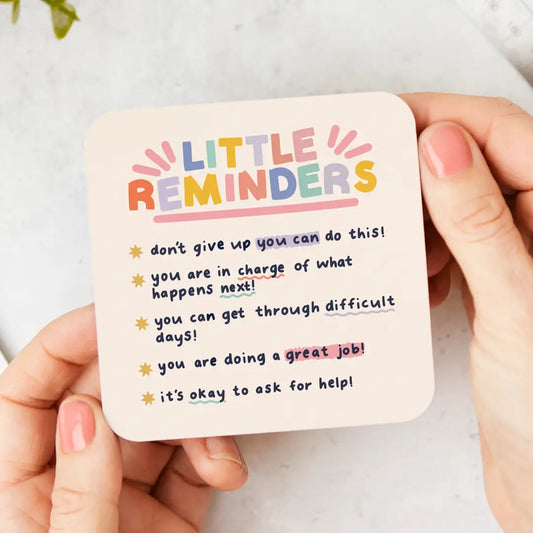 LITTLE
REMINDERS
don't give up you can do this!
you are in charge of what
happens next!
you can get through difficult
days!
you are doing a great job!
it's okay to ask for help!